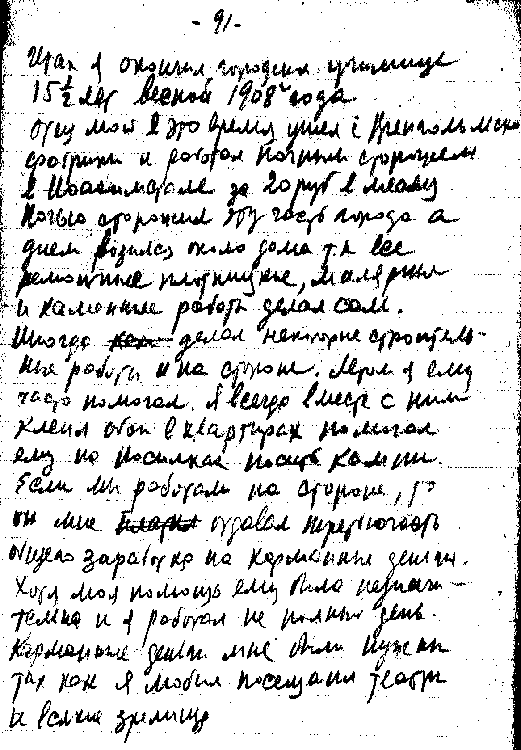 - 91 -
Итак я окончил городский училище
15 1/2 лет весной 1908 года
отец мой в это время ушел с Кренгольмской
фабрики и работал ночным сторожем
в Иоахимстале за 20 руб в месяц
Ночью сторожил эту часть города а
днем возился около дома т.к все
ремонтные плотницкие, малярныя
и каменные работы делал сам.
Иногда делал некоторые строитель-
ные работы и на стороне. Летом я ему
часто помогал. Я всегда вместе с ним
клеил обои в квартирах помогал
ему на носилках носить камни.
Если мы работали на стороне, то
он мне отдавал третью часть
общего заработка на карманные деньги.
Хотя моя помощь ему была незначи-
тельна и я работал не полный день.
Карманные деньги мне были нужны
так как я любил посещать театры
и всякие зрелища